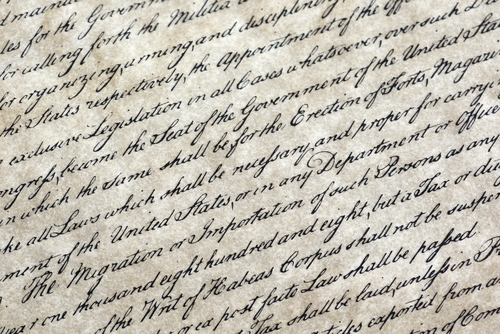 les for the Government
for calling forth the Militia
for organizing, arming, and disciplining
the States respectively, the Appointment of the Off
exclusive Legislation in all Cases whatsoever, over such D
ongress, become the Seat of the Government of the United Sta
in which the Same shall be, for the Erection of Forts, Magaz
he all Laws which shall be necessary and proper for carryi
ment of the United States, or in any Department or Office
The Migration or Importation of such Persons as any
year one thousand eight hundred and eight, but a Tax or du
of the Writ of Habeas Corpus shall not be suspe
or ex post facto Law shall be passed
Tax shall be laid, unless in P
exported from a